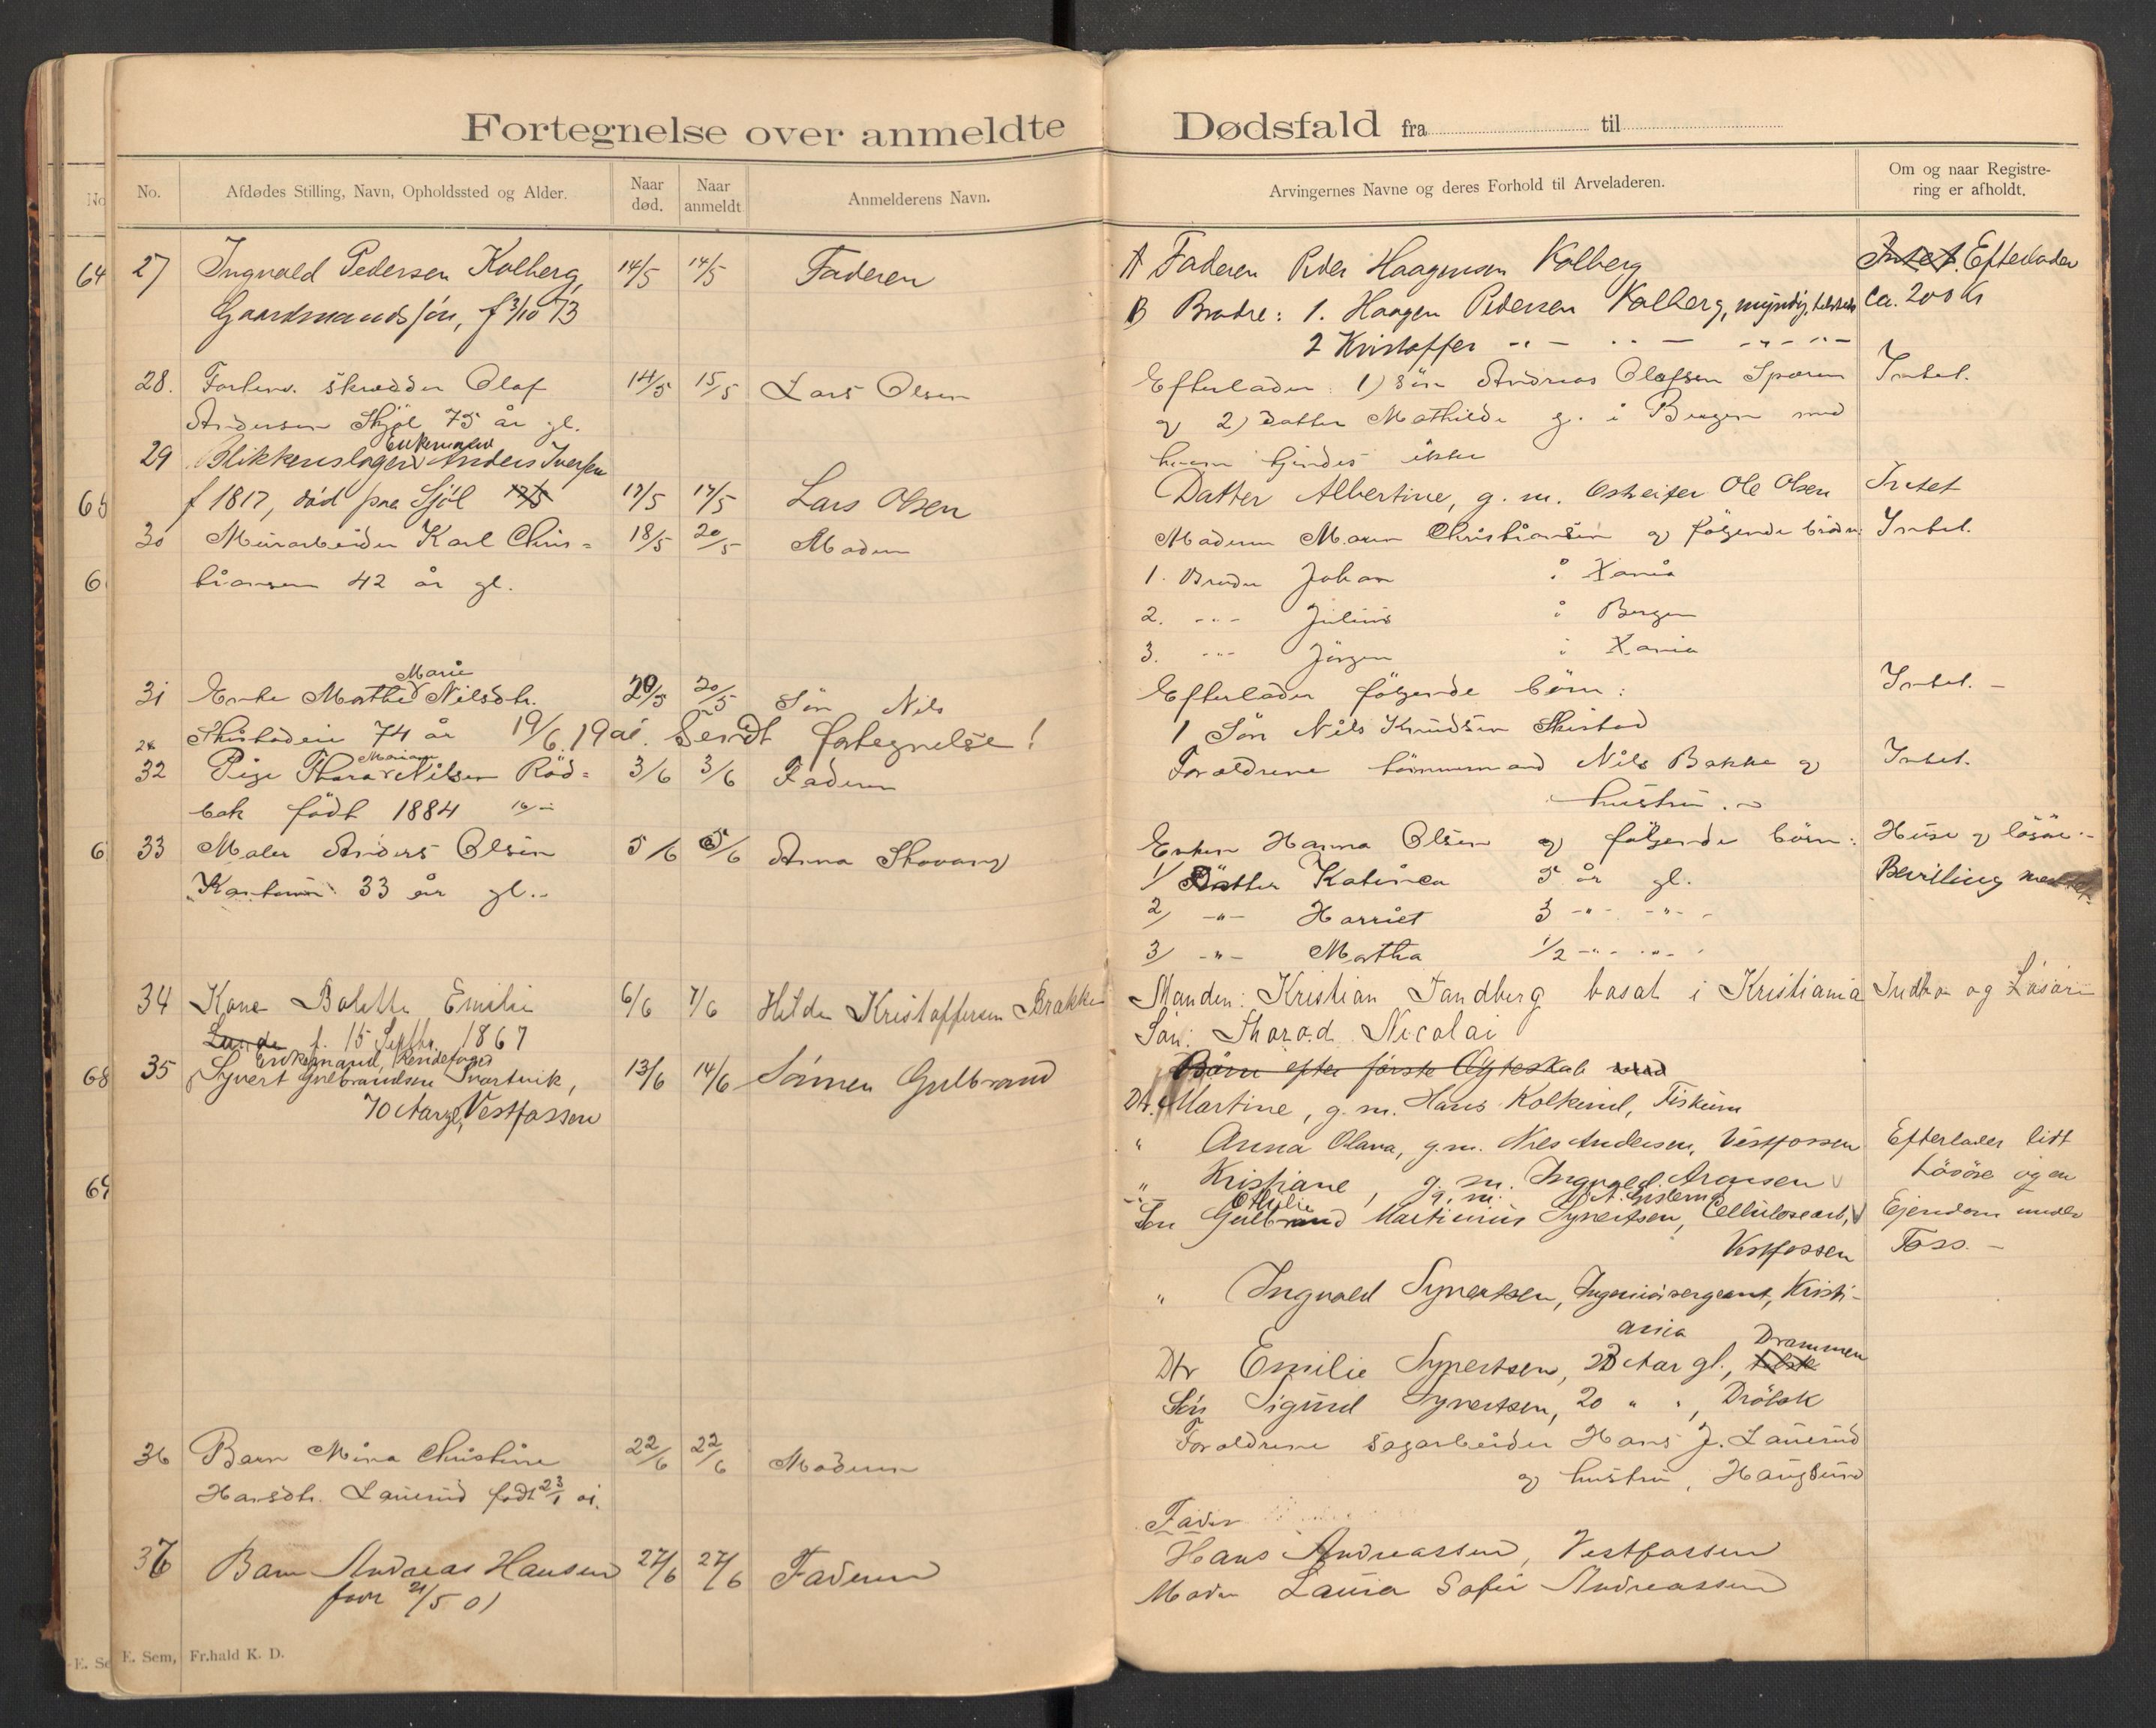 Fortegnelse over anmeldte Dødsfald fra til
No. Afdødes Stilling, Navn, Opholdssted og Alder. Naar død. Naar anmeldt Anmelderens Navn. Arvingernes Navne og deres Forhold til Arveladeren. Om og naar Registrering er afholdt.
27 Ingvald Pedersen Kolberg, 14/5 14/5 Faderen
Gaardmandssøn, f 3/10 73
28. Forhenv. skrædder Olaf 14/5 15/5 Lars Olsen
Andersen Skjøl 75 år gl.
Enkemand
29 Blikkenslager Anders Iversen
f 1817, død paa Sjøl 17/5 17/5 17/5 Lars Olsen
30 Murarbeider Karl Chris= 18/5 20/5 Moderen
tiansen 42 år gl.
Marie
31 Enke Mathed Nilsdtr. 20/5 20/5 Søn Nils
74 år 19/6. 19ai. Sendt fortegnelse!
32 Pige Thora Nilsen Röd= 3/6 3/6 Faderen
bak født 1884
33 Maler Anders Olsen 5/6 5/6 Anna Skovang
33 år gl.
34 Kone Bolette Emilie 6/6 7/6 Hilda Kristoffersen Brakke
Lunde f. 15 Septbr. 1867
Enkemand,
35 Syvert Gulbrandsen Svartvik, 13/6 14/6 Sønnen Gulbrand
70 Aar gl, Vestfossen
36 Barn Mina Christine 22/6 22/6 Moderen
Hansdtr. Lauerud født 23/1 01.
36 Barn Andreas Hansen 27/6 27/6 Faderen
født 21/5 01
E. Sem, Fr.hald K. D.
A Faderen Peder Haagensen Kolberg Intet. Efterlader
B Brødre: 1. Haagen Pedersen Kolberg, myndig, ca. 200 Kr
2 Kristoffer " - " - " - " -
Efterlader: 1) søn Andreas Olafsen Sparen Intet.
og 2) Datter Mathilde g. i Bergen med
hvem kjendes ikke
Datter Albertine, g. m. Ole Olsen Intet
Moderen Maren Christiansen og følgende brødre: Intet.
1. Broder Johan i Xania
2. -"- Julius i Bergen
3. -"- Jørgen i Xania
Efterlader følgende børn: Intet. -
1 Søn Nils Knudsen Skistad
Forældrene tømmermand Nils Bakke og Intet.
hustru.
Enken Hanna Olsen og følgende børn: Huse og løsøre.
1/ Datter Katinca 5 år gl. Bevilling
2/ -"- Harriet 3 -"- -"-
3/ -"- Martha 1/2 -"- -"-
Manden: Kristian Sandberg bosat i Kristiania Indbo og Løsøre
Søn: Thorod Nicolai
Børn efter første Ægteskab
Dtr. Martine, g. m. Hans Kolkind, Fiskum
" Anna Olava, g. m. Nils Andersen, Vestfossen Efterlader lidt
" Kristiane, g. m. Ingvald Aronsen Løsøre og en
Othilie g. m.
Søn Gulbrand Martinius Syvertsen, Cellulosearb., Ejendom under
Vestfossen Foss. -
" Ingvald Syvertsen, Ingeniørsergeant, Kristi-
ania
Drammen
Dtr Emilie Syvertsen, 23 Aar gl.,
Søn Sigurd Syvertsen, 20 " ", Drøbak
Forældrene Sagarbeider Hans J. Lauerud
og hustru, Haugsund
Fader
Hans Andreassen, Vestfossen
Moder Laura Sofie Andreassen
64
65
6
6
68
69